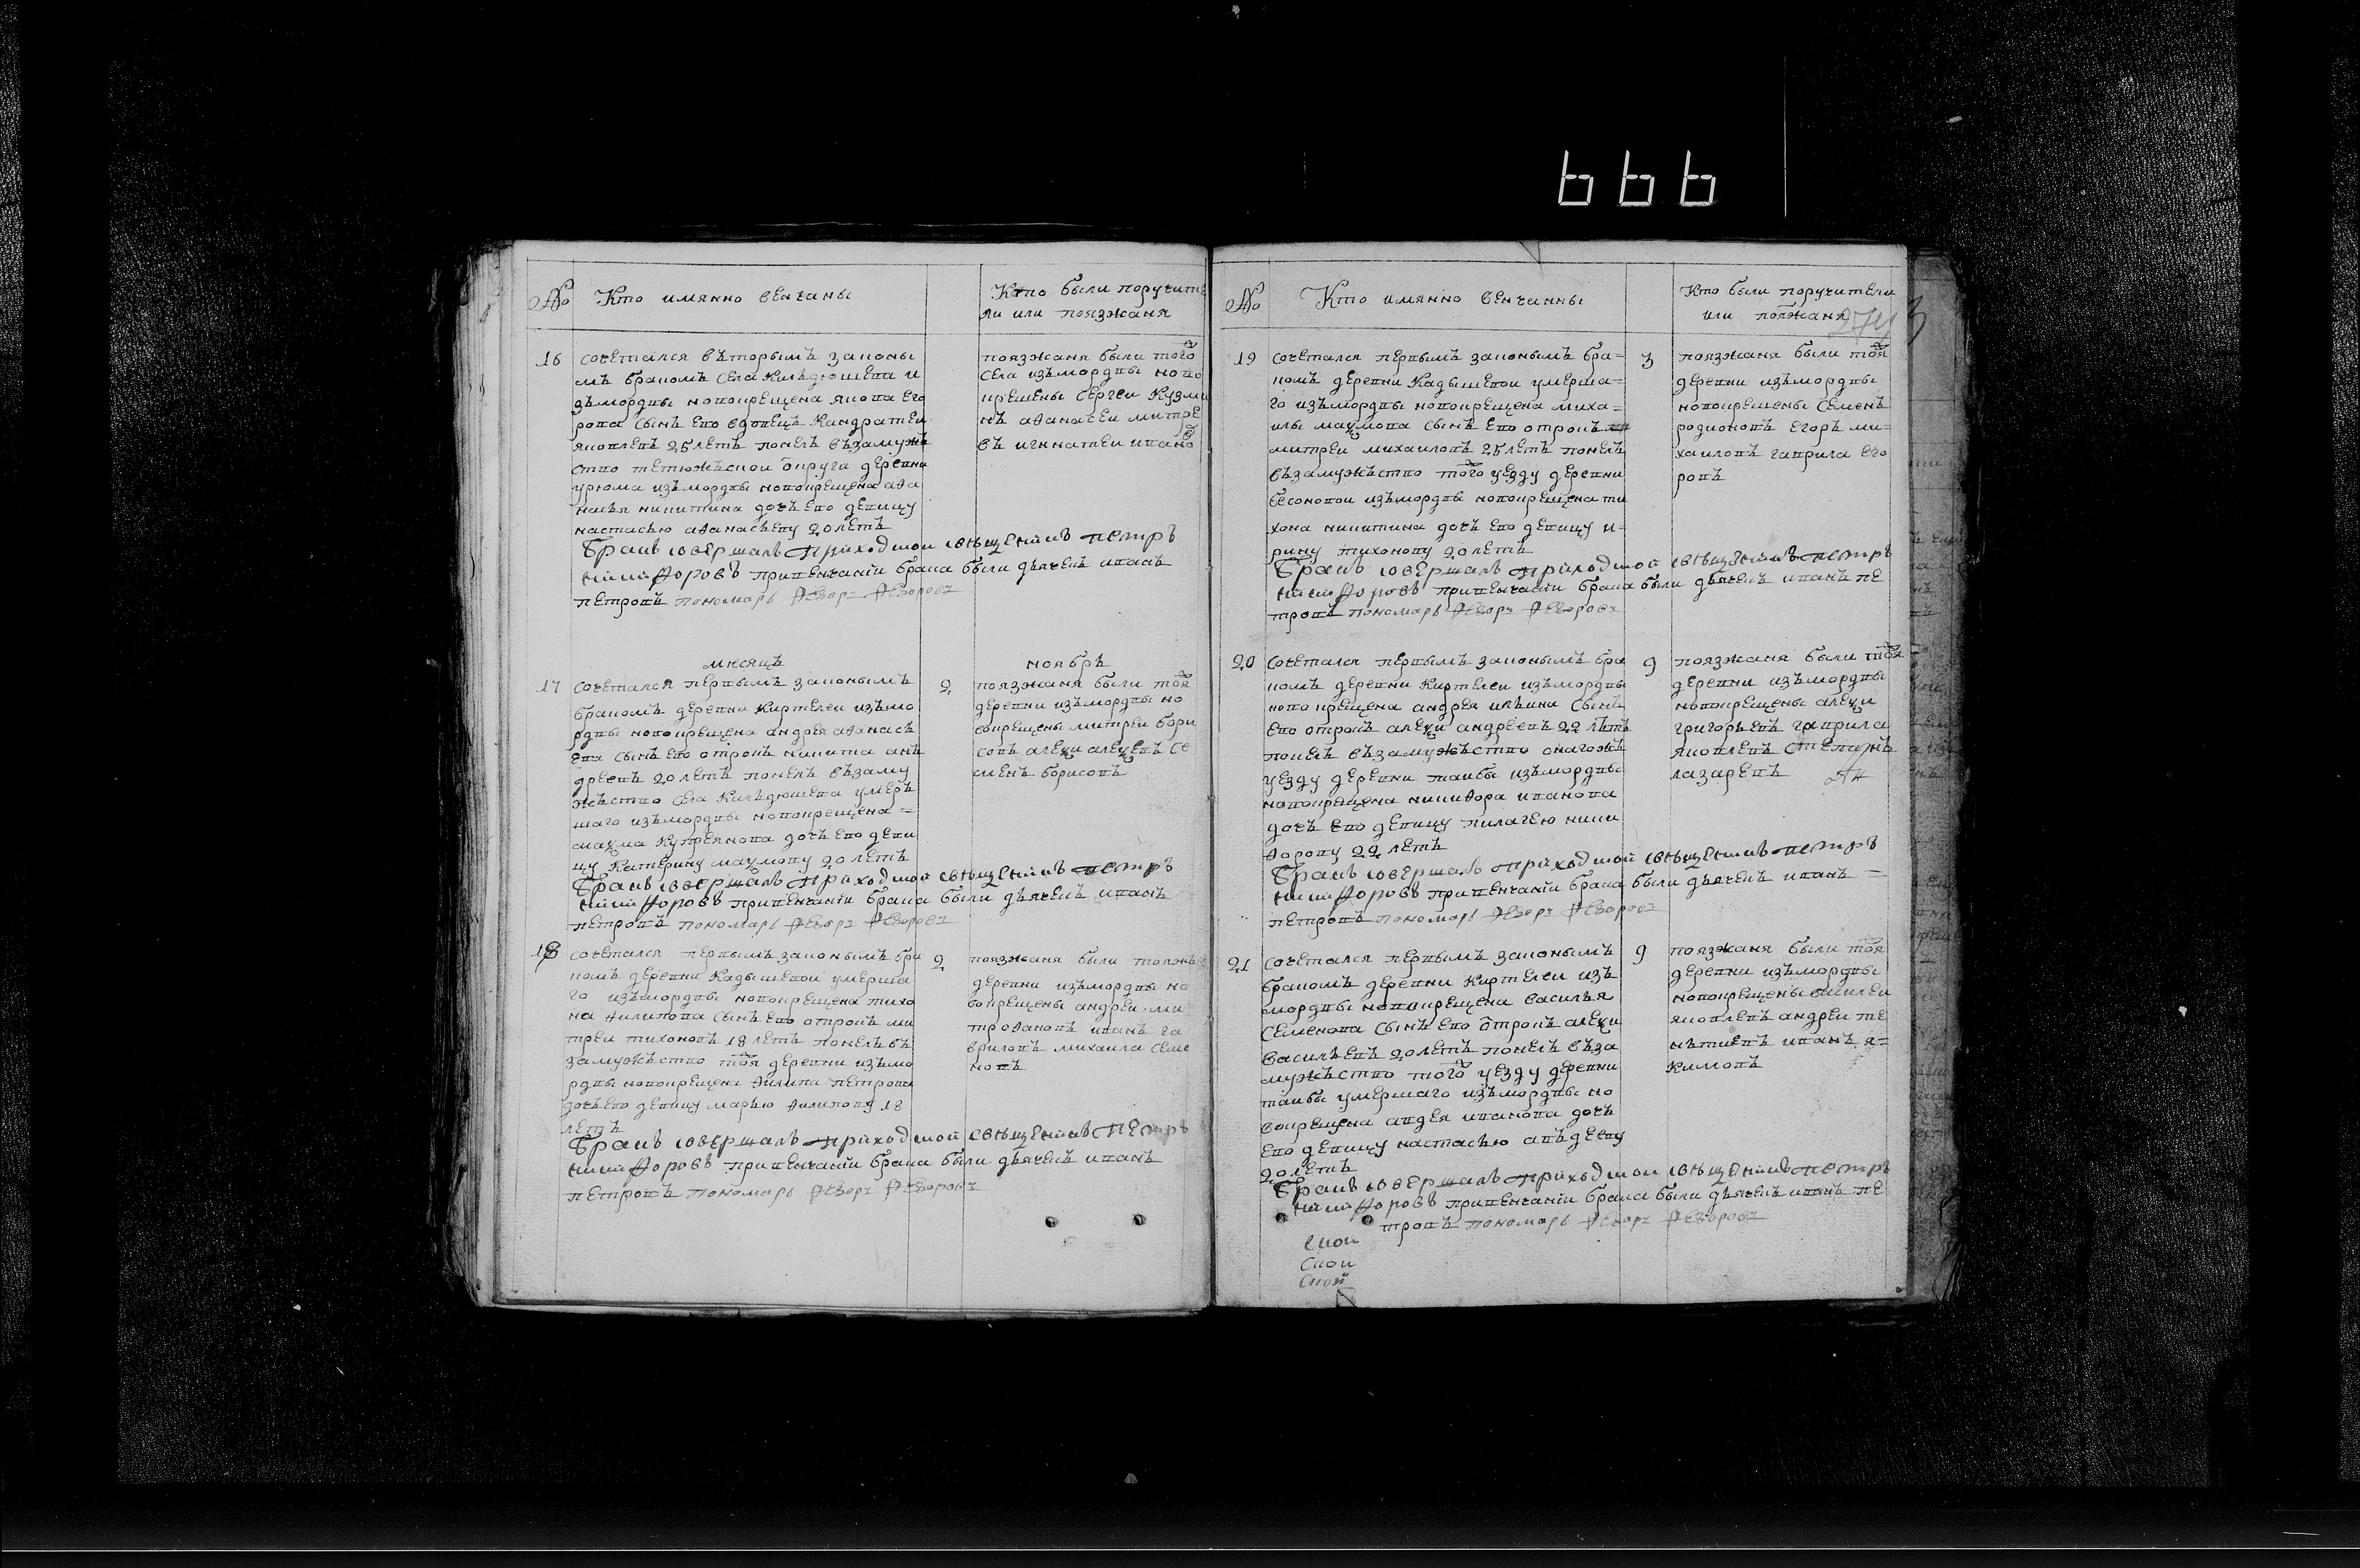 № Кто имянно венчаны
Кто были поручите
ли или поязжаня
16 сочетался вѣторымъ законы
мъ бракомъ села Килѣдюшева и
зъмордвы новокрещена якова его
рова сынъ ево вдовецъ Кандратеи
яковлевъ 25 летъ понелъ взамужъ
ство тетюжъскои округи деревни
урюма изъмордвы новокрещена афа
насья никитина дочь ево девицу
настасью афанасьеву 20 летъ
поязжаня были того
села изъмордвы ново
крещены Сергеи Кузми
нъ афанасеи митре
въ игкнатеи ивано
Бракъ совершалъ приходской священикъ петръ
никифоровъ привенчании брака были дьячекъ иванъ
петровъ пономарь Федоръ Федоровъ
месяцъ ноябрь
17 сочетался первымъ законымъ
бракомъ деревни Киртелеи изъмо
рдвы новокрещена андрея афанасъ
ева сынъ ево отрокъ никита анъ
древъ 20 летъ понелъ взаму
жъство села Килъдюшева умеръ
шаго изъмордвы новокрещена =
максима Купреянова дочь ево деви
цу Катерину максимову 20 летъ
2
поязжаня были тоя
деревни изъмордвы но
вокрещены митреи бори
совъ алекси алексевъ се
менъ борисовъ
Бракъ совершалъ приходской священикъ петръ
никифоровъ привенчании брака были дьячекъ иванъ
петровъ пономарь Федоръ Федоровъ
18 сочетался первымъ законымъ бра
комъ деревни Кадышевои умерша
го изъмордвы новокрещена тихо
на филипова сынъ ево отрокъ ми
треи тихоновъ 18 летъ понелъ въ
замужъство тоя деревни изъмо
рдвы новокрещена филипа петрова
дочь ево девицу марью филипову 18
летъ
2
поязжаня были тояжъ
деревни изъмордвы но
вокрещены андреи ми
трофановъ иванъ га
вриловъ михаила семе
новъ
Бракъ совершалъ приходской священикъ петръ
никифоровъ привенчании брака были дьячекъ иванъ
петровъ пономарь Федоръ Федоровъ
№ Кто имянно венчанны
Кто были поручители
или поязжаня
19 сочетался первымъ законымъ бра=
комъ деревни Кадышевои умерша=
го изъмордвы новокрещена миха=
илы максимова сынъ ево отрокъ
митреи михаиловъ 25 летъ понелъ
взамужъство того уезду деревни
бесоновои изъмордвы новокрещена ти
хона никитина дочь ево девицу и=
рину тихонову 20 летъ
3
поязжаня были тоя
деревни изъмордвы
новокрещены семенъ
родионовъ егоръ ми=
хаиловъ гаврила его
ровъ
Бракъ совершалъ приходской священикъ петръ
никифоровъ привенчании брака были дьячекъ иванъ пе
тровъ пономарь Федоръ Федоровъ
20 сочетался первымъ законымъ бра
комъ деревни Киртелеи изъмордвы
новокрещена андрея илъина сынъ
ево отрокъ алекси андреевъ 22 летъ
понелъ взамужъство онагожъ
уезду деревни таибы изъмордвы
новокрещена никифора иванова
дочь ево девицу пилагею ники
форову 22 летъ
9
поязжаня были тоя
деревни изъмордвы
новокрещены алекси
григорьевъ гаврила
яковлевъ
лазаревъ
Бракъ совершалъ приходской священикъ петръ
никифоровъ привенчании брака были дьячекъ иванъ =
петровъ пономарь Федоръ Федоровъ
21 сочетался первымъ законымъ
бракомъ деревни Киртелеи изъ
мордвы новокрещена василья
Семенова сынъ ево отрокъ алекси
васильевъ 20 летъ понелъ въза
мужъство того уезду деревни
таибы умершаго изъмордвы но
вокрещена авдея иванова дочь
ево девицу настасью авъдееву
20 летъ
9
поязжаня были тоя
деревни изъмордвы
новокрещены василеи
яковлевъ андреи те
нътиевъ иванъ я=
кимовъ
Бракъ совершалъ приходской священикъ петръ
никифоровъ привенчании брака были дьячекъ иванъ пе
тровъ пономарь Федоръ Федоровъ
скои
скои
скои